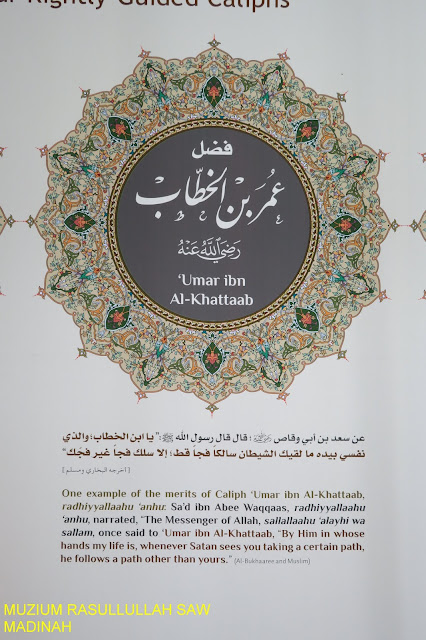 ur Rightly Guided Caliphs
فضل
عمر بن الخطاب
رضي الله عنه
‘Umar ibn
Al-Khattaab
عن سعد بن أبي وقاص رضي الله عنه؛ قال قال رسول الله ﷺ: "يا ابن الخطاب؛ والذي
نفسي بيده ما لقيك الشيطان سالكًا فجاً قط؛ إلا سلك فجاً غير فجك"
[ أخرجه البخاري ومسلم ]
One example of the merits of Caliph ‘Umar ibn Al-Khattaab,
radhiyyallaahu ‘anhu: Sa’d ibn Abee Waqqaas, radhiyyallaahu
‘anhu, narrated, “The Messenger of Allah, sallallaahu ‘alayhi wa
sallam, once said to ‘Umar ibn Al-Khattaab, “By Him in whose
hands my life is, whenever Satan sees you taking a certain path,
he follows a path other than yours.” (Al-Bukhaaree and Muslim)
MUZIUM RASULLULLAH SAW
MADINAH